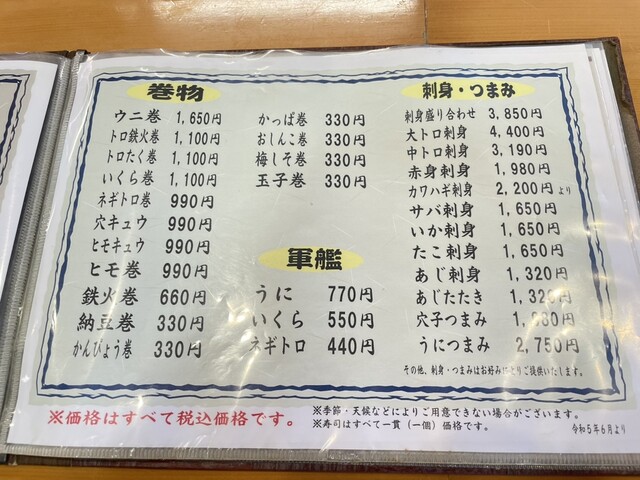 巻物
ウニ巻 1,650円
トロ鉄火巻 1,100円
トロたく巻 1,100円
いくら巻 1,100円
ネギトロ巻 990円
穴キュウ 990円
ヒモキュウ 990円
ヒモ巻 990円
鉄火巻 660円
納豆巻 330円
かんぴょう巻 330円
かっぱ巻 330円
おしんこ巻 330円
梅しそ巻 330円
玉子巻 330円
軍艦
うに 770円
いくら 550円
ネギトロ 440円
刺身・つまみ
刺身盛り合わせ 3,850円
大トロ刺身 4,400円
中トロ刺身 3,190円
赤身刺身 1,980円
カワハギ刺身 2,200円より
サバ刺身 1,650円
いか刺身 1,650円
たこ刺身 1,650円
あじ刺身 1,320円
あじたたき 1,320円
穴子つまみ
うにつまみ 2,750円
その他、刺身・つまみはお好みによりご提供いたします。
※価格はすべて税込価格です。
※季節・天候などによりご用意できない場合がございます。
※寿司はすべて一貫（一個）価格です。
令和5年6月より